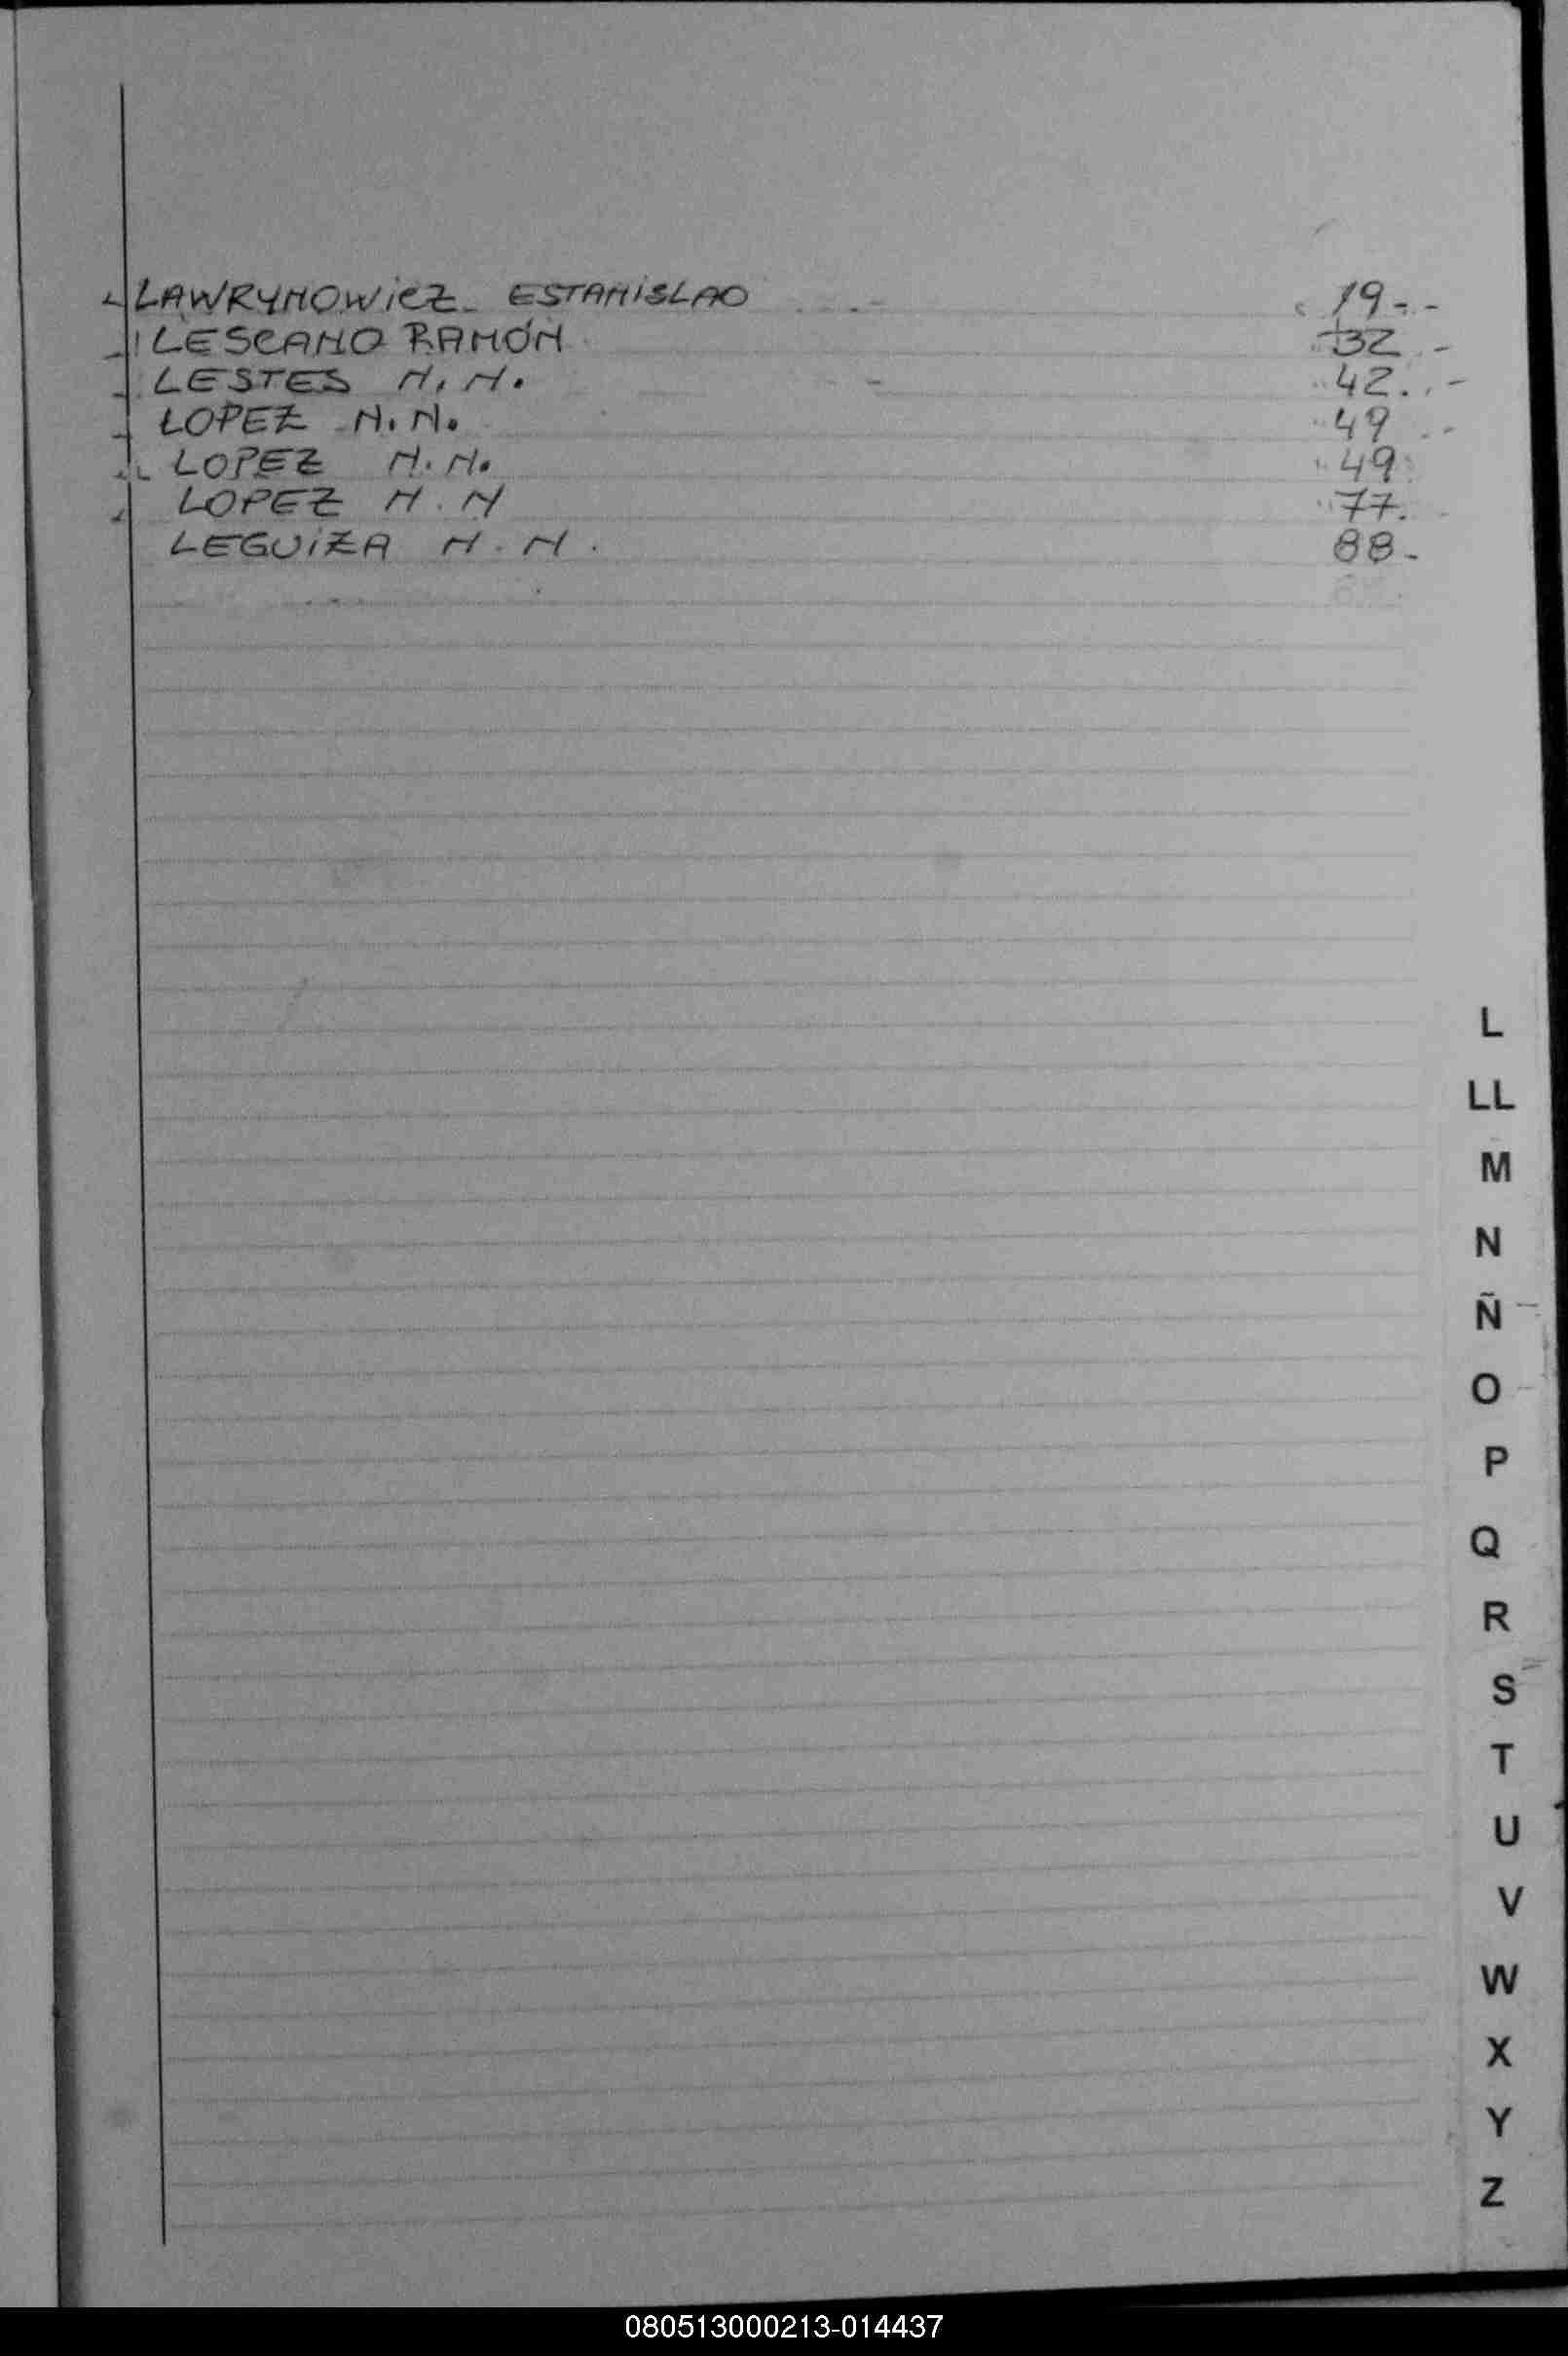 LAWRYNOWICZ - ESTANISLAO 19 -
LESCANO RAMÓN 32 -
LESTES N. N. 42. -
LOPEZ N. N. 49 -
LOPEZ N. N. 49
LOPEZ N. N 77.
LEGUIZA N. N. 88 -
L
LL
M
N
Ñ
O
P
Q
R
S
T
U
V
W
X
Y
Z
080513000213-014437